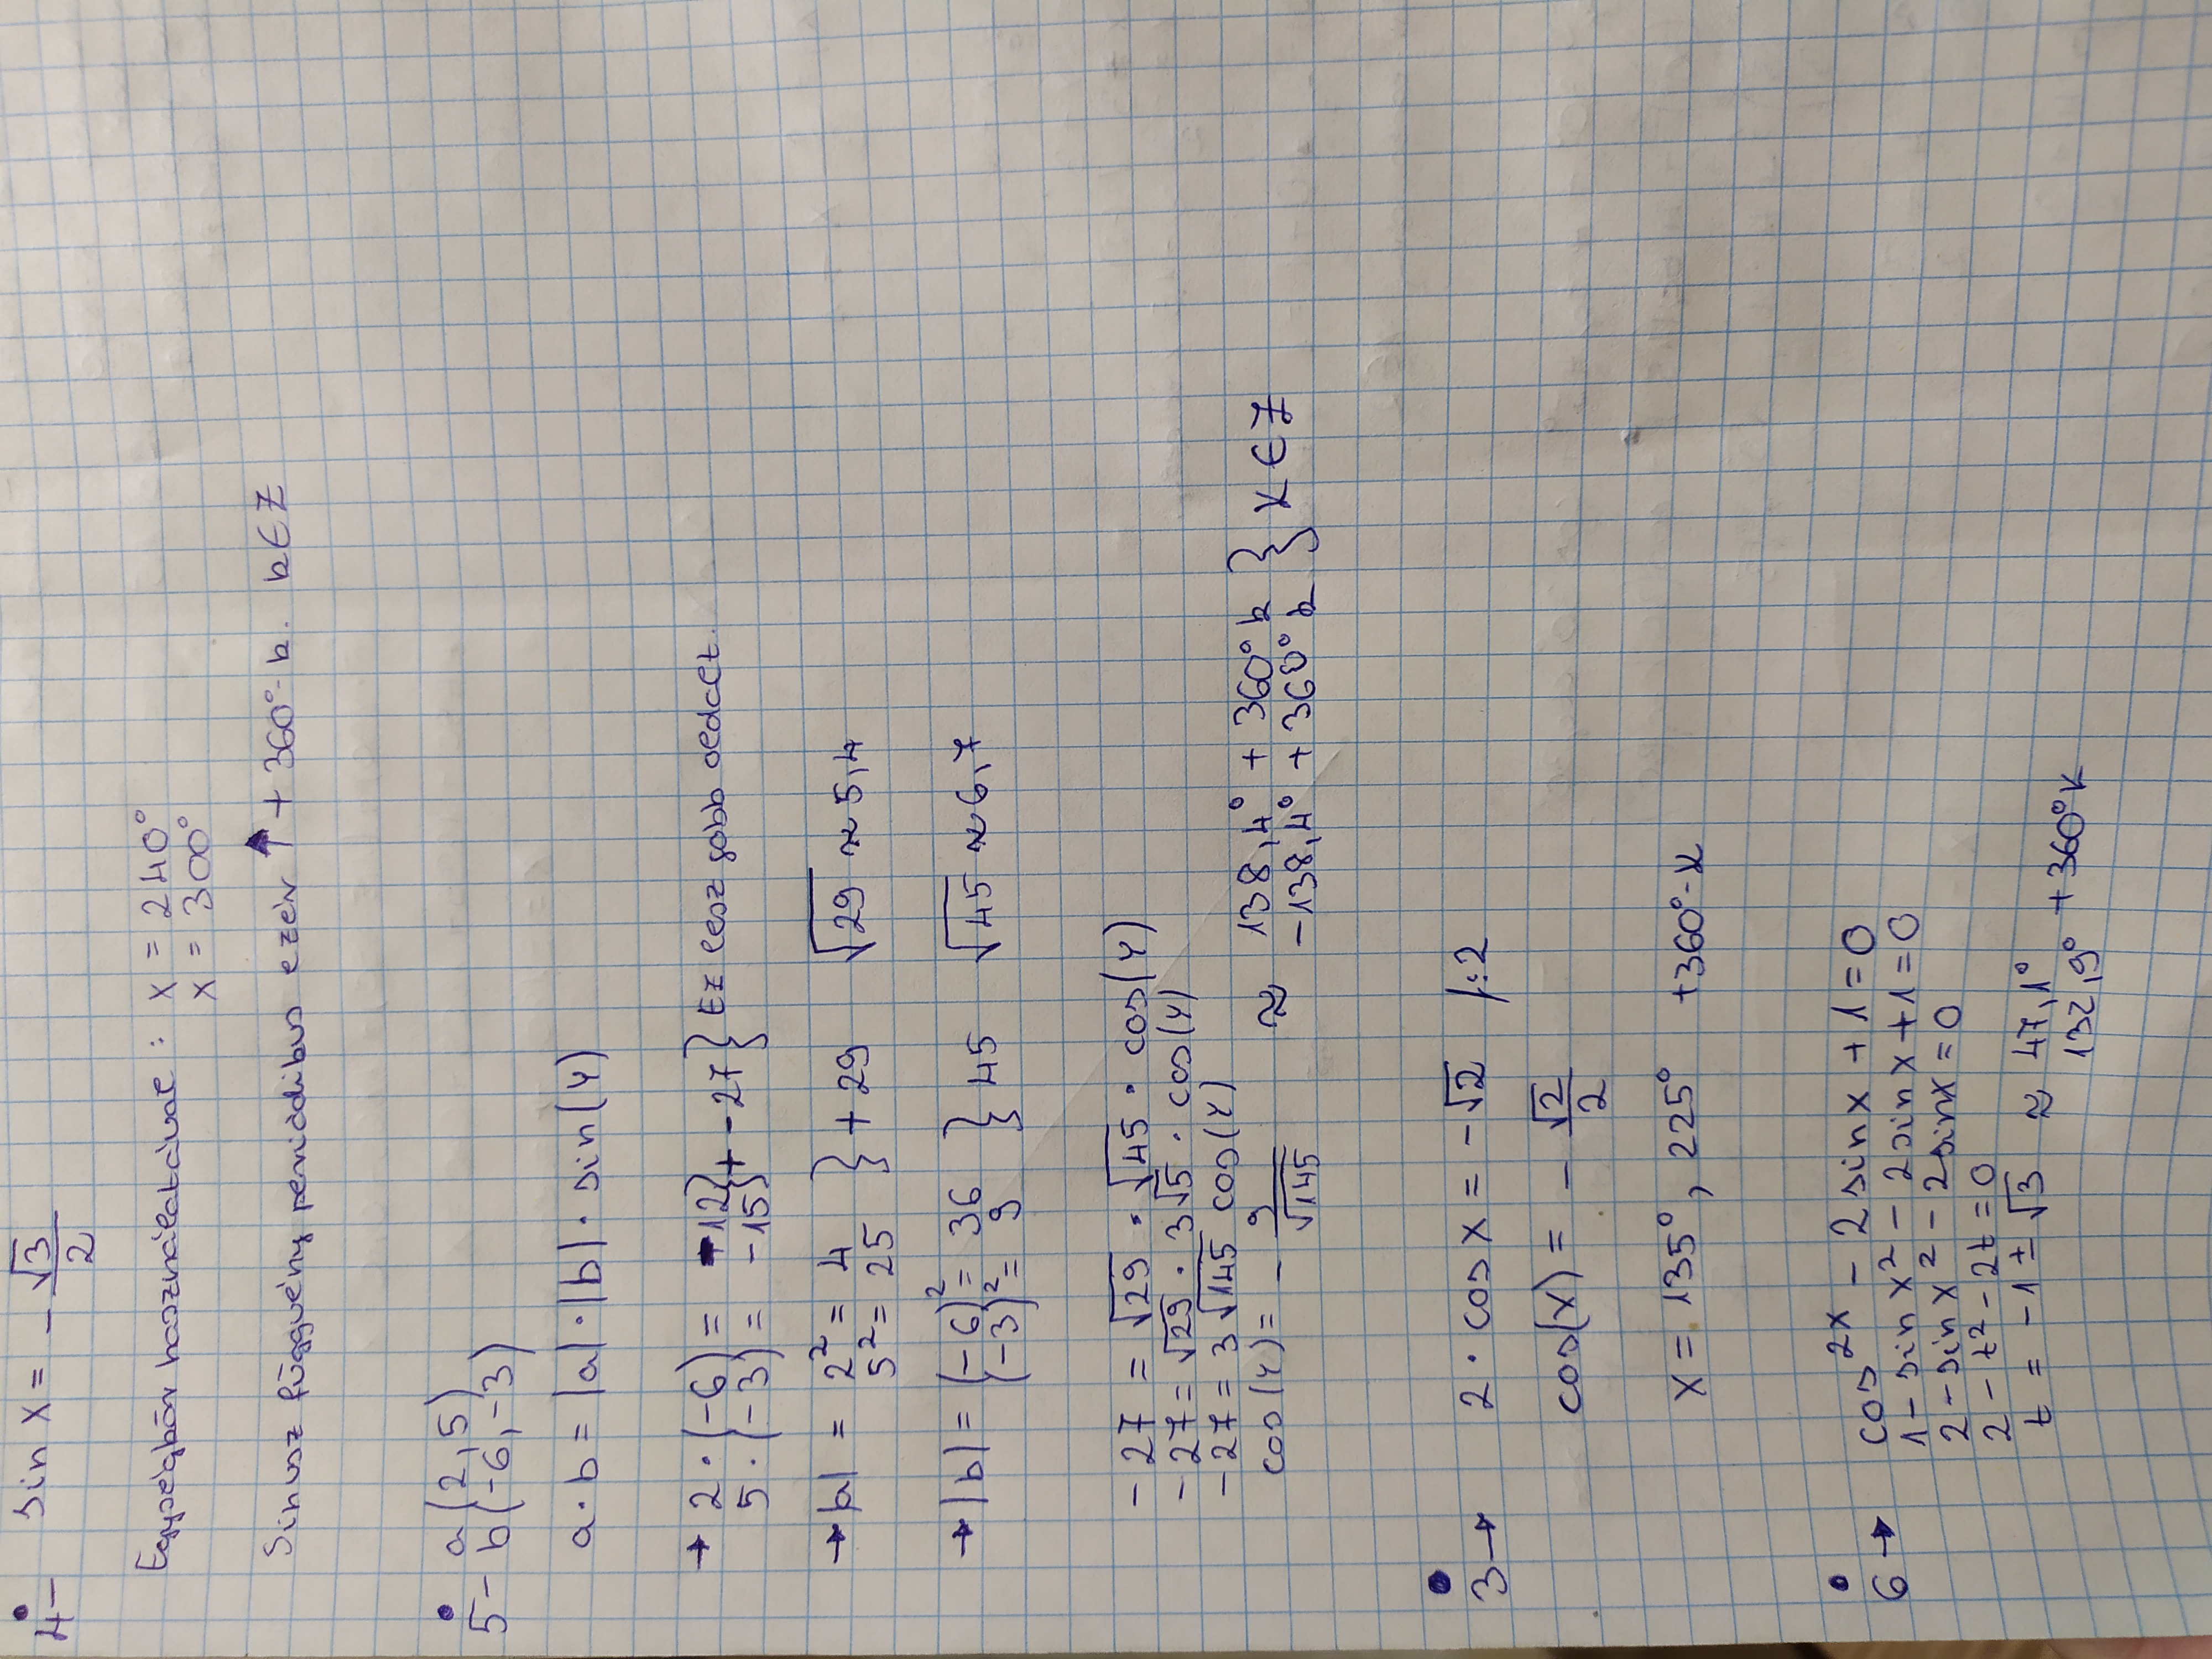 4- sin x = - √3/2
Egységkör használatával: x = 240°
x = 300°
Sinusz függvény periódikus ezért ↑ + 360°·k. k∈Z
5- a(2,5)
b(-6,-3)
a·b = |a|·|b|·sin(γ)
→ 2·(-6) = -12 } + -27 } Ez lesz jobb oldalt.
5·(-3) = -15
→ |a| = 2² = 4 } + 29 √29 ≈ 5,4
5² = 25
→ |b| = (-6)² = 36 } 45 √45 ≈ 6,7
(-3)² = 9
-27 = √29 · √45 · cos(γ)
-27 = √29 · 3√5 · cos(γ)
-27 = 3√145 cos(γ)
cos(γ) = - 9/√145 ≈ 138,4° + 360° k } K∈Z
-138,4° + 360° k
3→ 2·cos x = -√2 /:2
cos(x) = - √2/2
x = 135°, 225° +360°·K
6→ cos²x - 2sin x + 1 = 0
1 - sin x² - 2sin x + 1 = 0
2 - sin x² - 2sinx = 0
2 - t² - 2t = 0
t = -1 ± √3 ≈ 47,1°
132,9° + 360°K